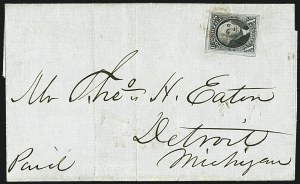 Mr Theo H. Eaton
Detroit
Michigan
Paid